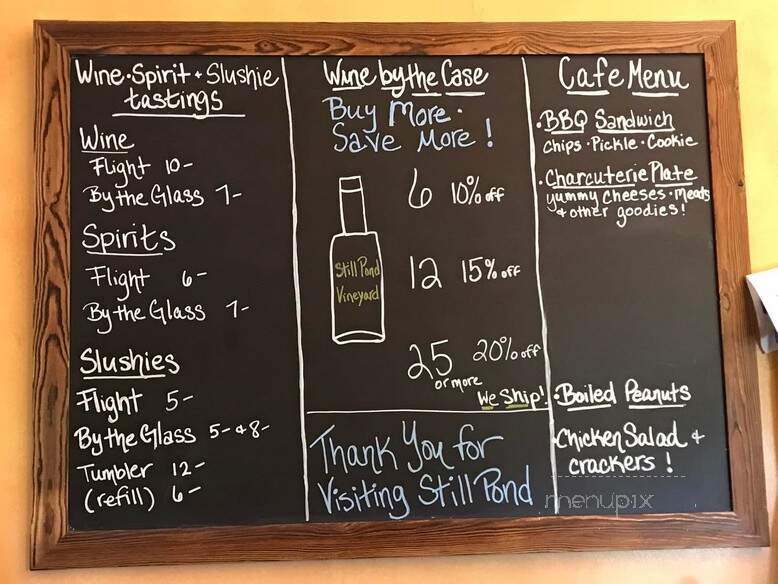 Wine · Spirit + Slushie
tastings
Wine
Flight 10-
By the Glass 7-
Spirits
Flight 6-
By the Glass 7-
Slushies
Flight 5-
By the Glass 5- + 8-
Tumbler 12-
(refill) 6-
Wine by the Case
Buy More ·
Save More !
6 10% off
Still Pond
Vineyard
12 15% off
25 20% off
or more
We Ship!
Thank You for
Visiting Still Pond
Cafe Menu
· BBQ Sandwich
Chips · Pickle · Cookie
· Charcuterie Plate
yummy cheeses · meats
+ other goodies!
· Boiled Peanuts
· Chicken Salad +
crackers !
menupix